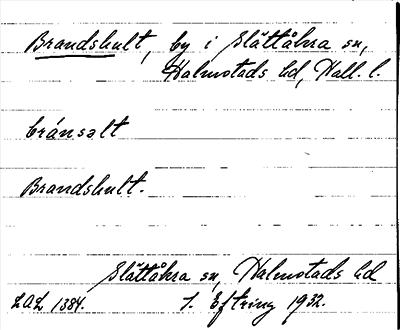 Brandshult, by i Slättåkra sn,
Halmstads hd, Hall. l.
bránsalt
Brandshult.
Slättåkra sn, Halmstads hd
LAL 1384. J. Eftring 1932.